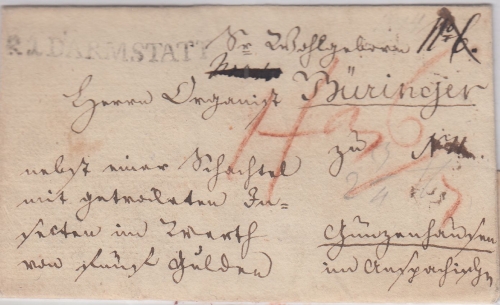 R.1.DARMSTATT
Sr Wohlgeborn
Herrn Organist Büringer
zu
nebst einer Schachtel
mit getrockneten In=
secten im Werth
von fünf Gulden
Gunzenhausen
im Anspachischen